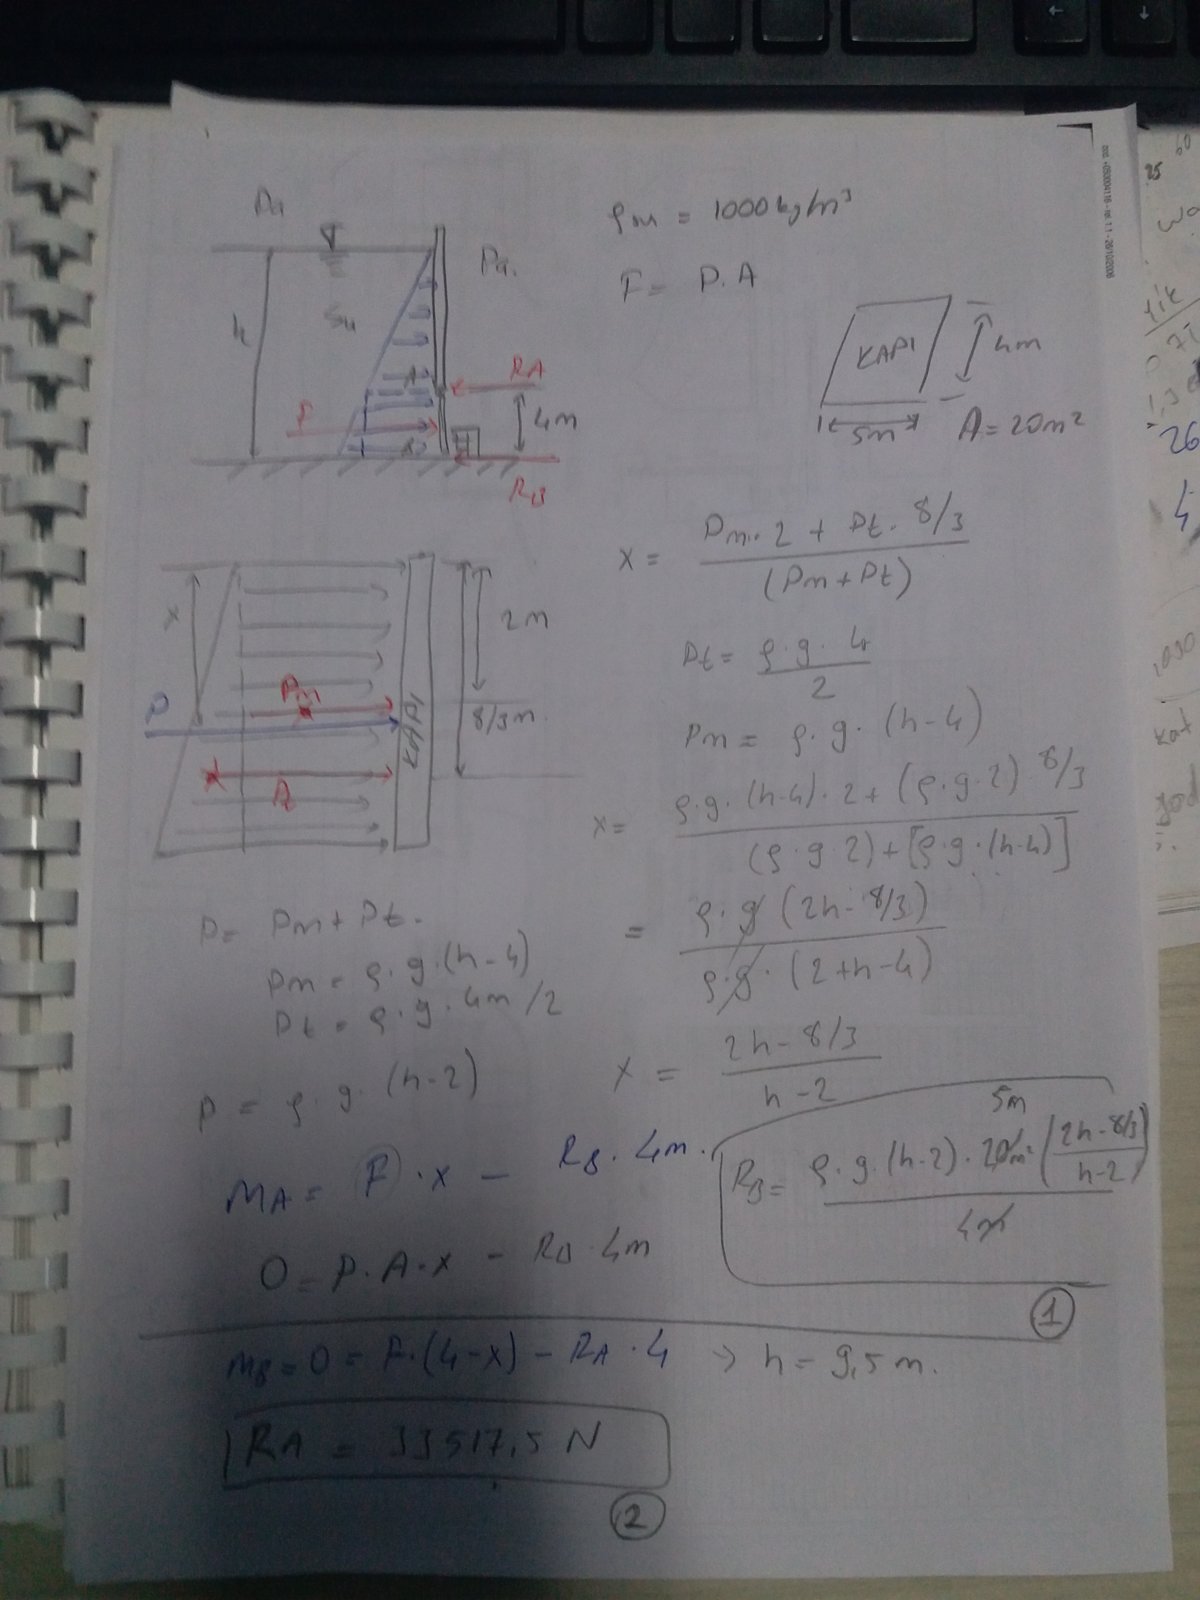 Pa
h
Su
Pa.
A
RA
F
4m
RB
ρsu = 1000 kg/m³
F = P.A
KAPI
4m
5m
A = 20m²
x
2m
Pm
P
8/3m.
KAPI
x = Pm. 2 + Pt. 8/3 / (Pm + Pt)
Pt = ρ.g. 4 / 2
Pm = ρ.g. (h-4)
x = ρ.g. (h-4). 2 + (ρ.g.2) 8/3 / (ρ.g.2) + [ρ.g.(h-4)]
= ρ.g (2h - 8/3) / ρ.g. (2+h-4)
x = 2h - 8/3 / h-2
P = Pm + Pt.
Pm = ρ.g.(h-4)
Pt = ρ.g.4m/2
P = ρ.g. (h-2)
MA = F.x - RB. 4m.
0 = P.A.x - RB 4m
5m
RB = ρ.g.(h-2). 20m² (2h-8/3 / h-2) / 4m
1
MB = 0 = F.(4-x) - RA.4 → h = 9,5 m.
RA = 33517,5 N
2